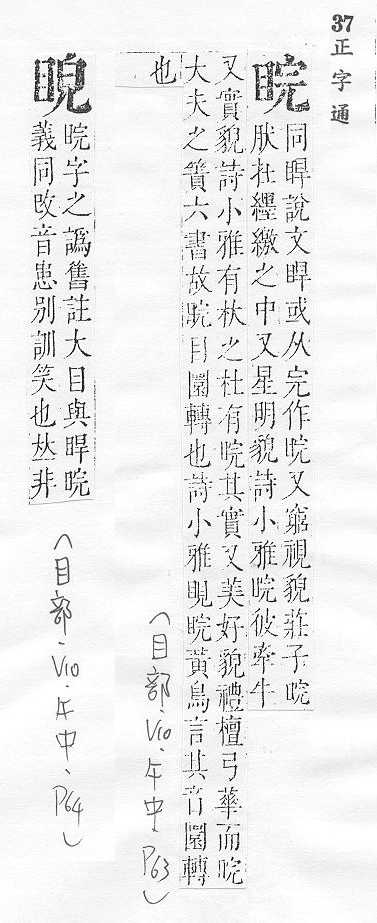 37 正字通
睆
同睅說文睅或从完作睆又窮視貌莊子睆
肰在纆繳之中又星明貌詩小雅睆彼牽牛
又實貌詩小雅有杕之杜有睆其實又美好貌禮檀弓華而睆
大夫之簀六書故睆目圜轉也詩小雅睍睆黃鳥言其音圜轉
也
（目部、V10、午中、P63）
睆字之譌舊註大目與睅睆
義同改音患別訓笑也𠀤非
（目部、V10、午中、P64）